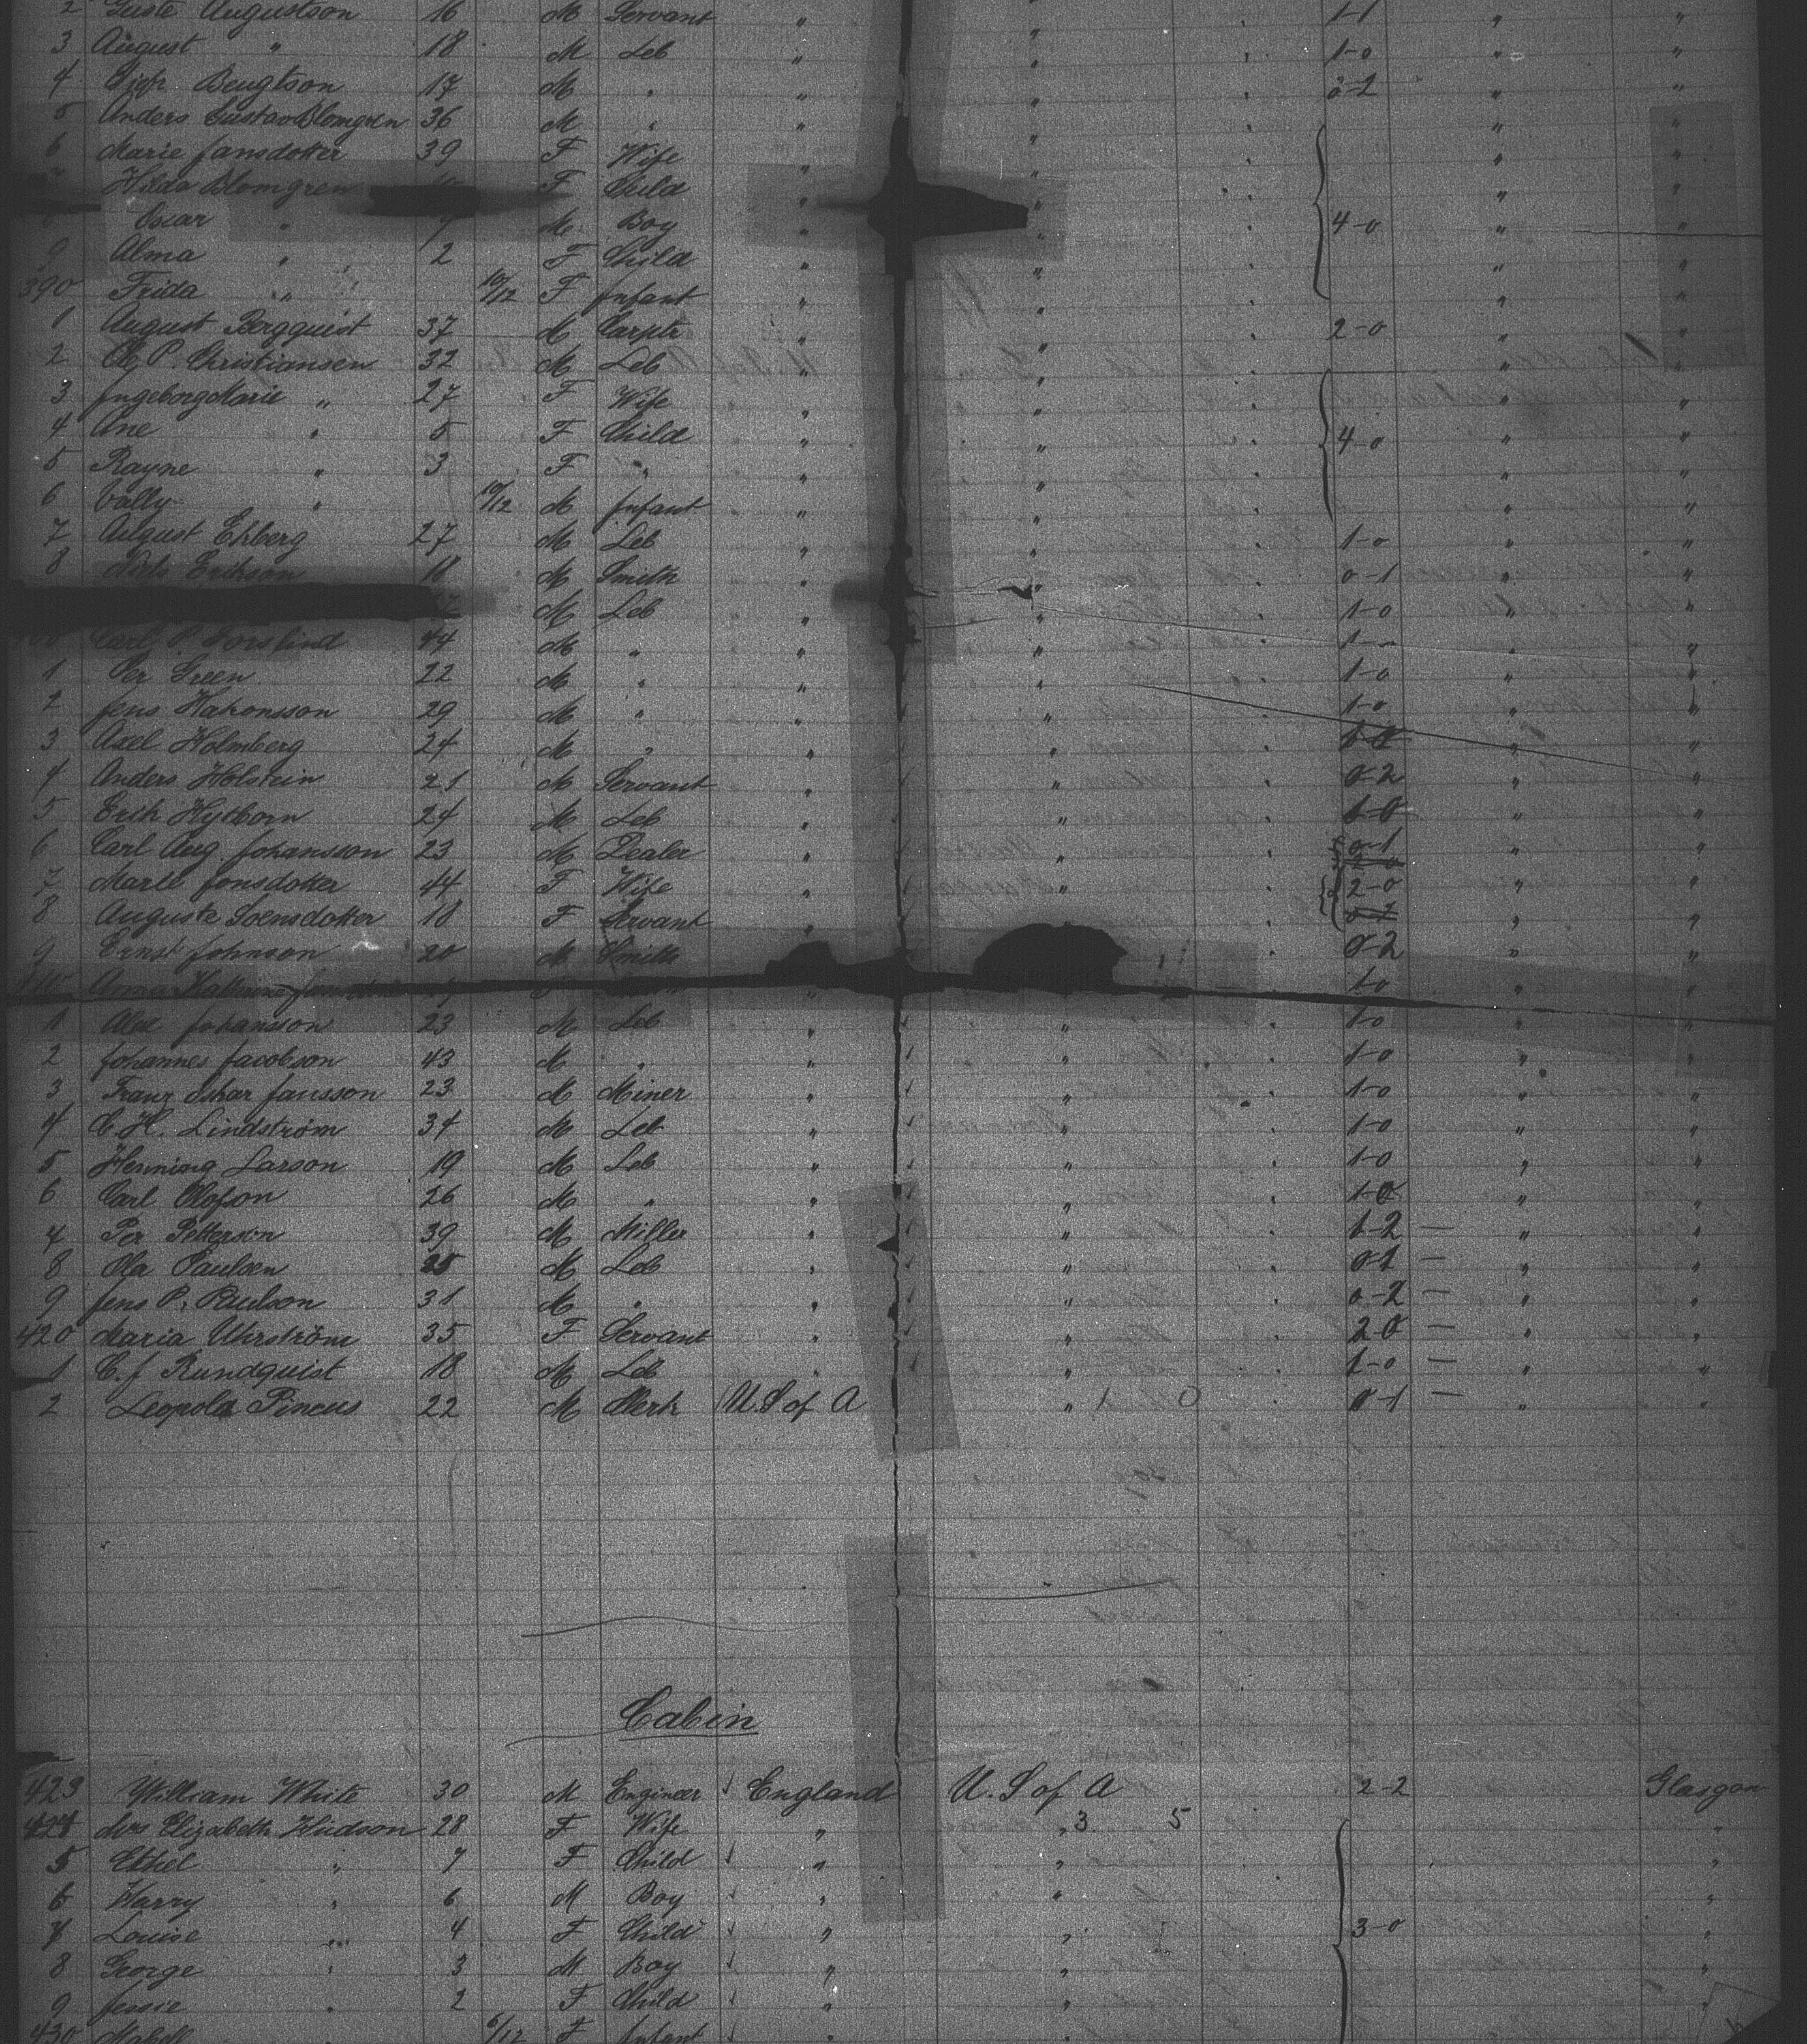 2 Guste Augustson 16 M Servant " " 1-1 " "
3 August " 18 M Leb " " 1-0 " "
4 Bengtson 17 M " " " 0-2 " "
5 Anders Gustav Blomgren 36 M " " " " "
6 Marie Jansdotter 39 F Wife " " " "
Hilda Blomgren F Child " " " "
Oscar " 7 M Boy " " 4-0 " "
9 Alma " 2 F Child " " " "
390 Frida " 10/12 F Infant " " " "
1 August Bergquist 37 M Carptr " " 2-0 " "
2 Ole P. Christiansen 32 M Leb " " " "
3 Ingeborg Marie " 27 F Wife " " " "
4 Ane " 5 F Child " " 4-0 " "
5 Rayne " 3 F " " " " "
6 Vally " 10/12 M Infant " " " "
7 August Ehberg 27 M Leb " " 1-0 " "
8 Erikson 18 M Smith " " 0-1 " "
M Leb " " 1-0 " "
Carl P. Forslind 44 M " " " " "
1 Per Green 22 M " " " 1-0 " "
2 Jens Hakonsson 29 M " " " 1-0 " "
3 Axel Holmberg 24 M " " " 1-0 " "
4 Anders Holstein 21 M Servant " " 0-2 " "
5 Erik Hytborn 24 M Leb " " 1-0 " "
6 Carl Aug. Johansson 23 M Dealer " " 0-1 " "
7 Marie Jonsdotter 44 F Wife " " 2-0 " "
8 Auguste Svensdotter 18 F Servant " " " "
9 Ernst Johnson 20 M Smith " " 0-2 " "
Anna Katherina " 1-0 " "
1 Alex Johansson 23 M Leb " " 1-0 " "
2 Johannes Jacobson 43 M " " " 1-0 " "
3 Franz Oskar Jansson 23 M Miner " " 1-0 " "
4 C. H. Lindström 34 M Leb " " 1-0 " "
5 Henning Larson 19 M Leb " " 1-0 " "
6 Carl Olofson 26 M " " " 1-0 " "
7 Per Petterson 39 M Miller " " 1-2 — " "
8 Ola Paulsen 25 M Leb " " 0-1 — " "
9 Jens P. Paulson 31 M " " " 0-2 — " "
420 Maria Uhrström 35 F Servant " " 2-0 — " "
1 C. J. Rundquist 18 M Leb " " 1-0 — " "
2 Leopold Pincus 22 M Clerk U. S of A " 1 0 0-1 — " "
Cabin
423 William White 30 M Engineer England U. S of A 2-2 Glasgow
424 Mrs Elizabeth Hudson 28 F Wife " " 3 5 "
5 Ethel " 7 F Child " " "
6 Harry " 6 M Boy " " "
7 Louise " 4 F Child " " 3-0 "
8 George " 3 M Boy " " "
9 Jessie " 2 F Child " " "
430 6/12 F Infant " "